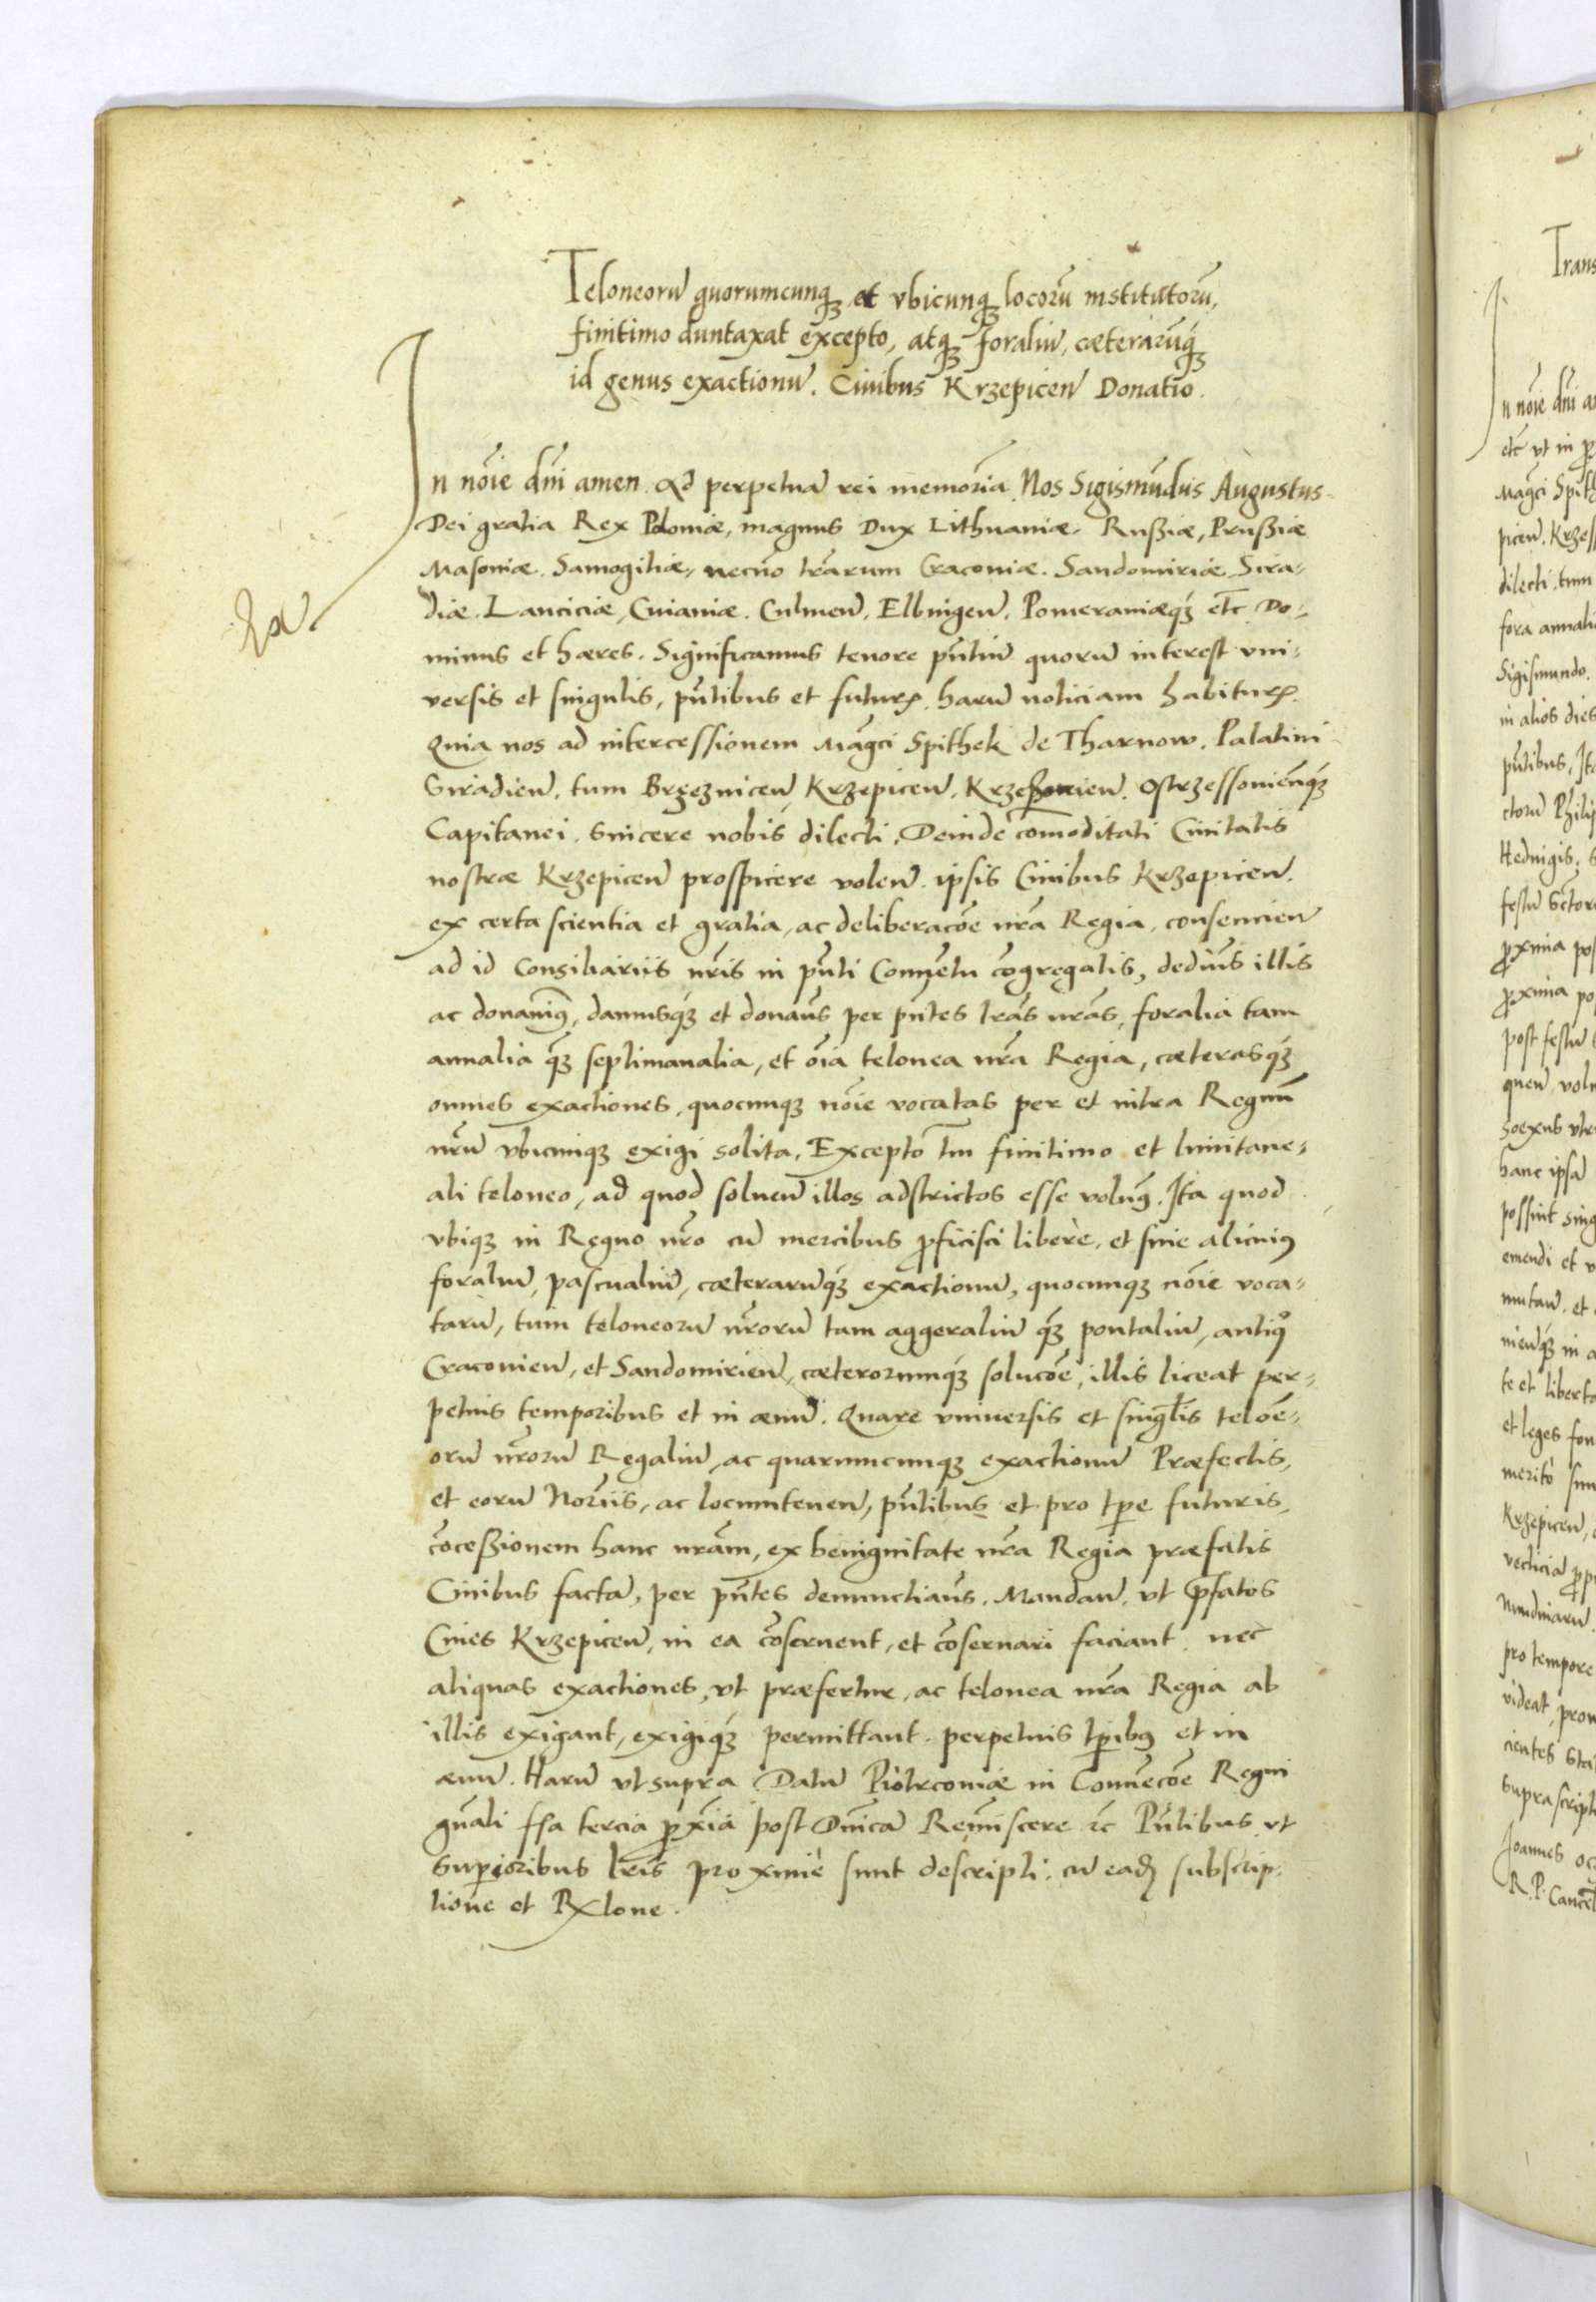 Teloneorū quorumcunq̨ et vbicunq̨ locorū institutorū,
finitimo duntaxat excepto, atq̨ foraliū, cæterarūq̨
id genus exactionū. Ciuibus Krzepiceñ Donatio.
In nōie dn̄i amen. Ad perpetuā rei memoriā Nos Sigismūdus Augustus
Dei gratia Rex Poloniæ, magnus Dux Lithuaniæ. Rußiæ, Prußiæ
Masoniæ. Samogitiæ, necnō trārum Craconiæ. Sandomiriæ Sira-
diæ. Lanciciæ, Cuiauiæ. Culmeñ. Elbingeñ. Pomeraniæq̨ etc̄ Do-
minus et hæres. Significamus tenore pn̄tiū quorū interest vni-
versis et singulis, pn̄tibus et futurꝝ. harū noticiam habiturꝝ.
Quia nos ad intercessionem Māgci Spithek de Tharnow. Palatini
Siradieñ. tum Brzezniceñ, Krzepiceñ. Ostrzessoniēnq̨
Capitanei. Sincere nobis dilecti. Deinde cōmoditati Ciuitatis
nostræ Krzepiceñ prospicere voleñ. ipsis Ciuibus Krzepiceñ.
ex certa scientia et gratia, ac deliberacōe nr̄a Regia, consencieñ
ad id Consiliariis nr̄is in pn̄ti Conuentu cōgregatis, dedim̄s illis
ac donauim̄9, damusq̨ et donam̄s per pn̄tes lr̄as nr̄as, foralia tam
annalia q̨̄ septimanalia, et oīa telonea nr̄a Regia, cæterasq̨
omnes exactiones, quocunq̨ nōie vocatas per et intra Regnū
nr̄ū vbicunq̨ exigi solita, Excepto tm̄ finitimo et limitane-
ali teloneo, ad quod solueñ illos adstrictos esse volum9. Ita quod
vbiq̨ in Regno nr̄o cū mercibus ꝓficisci liberè, et sine alicuius
foraliū, pascualiū, cæterarūq̨ exactionū, quocunq̨ nōie voca-
tarū, tum teloneorū nr̄orū tam aggeraliū q̨̄ pontaliū, antiquo
Cracouieñ, et Sandomirieñ, cæterorumq̨ solucōe, illis liceat per-
petuis temporibus et in æuū. Quare vniuersis et singl̄is telōe-
orū nr̄orū Regaliū, ac quarumcunq̨ exactionū Præfectis,
et eorū Norīis, ac locumteneñ, pn̄tibus et pro tp̄e futuris,
cōceßionem hanc nr̄am, ex benignitate nr̄a Regia præfatis
Ciuibus factā, per pn̄tes denunctiam̄s. Mandañ. vt Pfatos
Ciues Krzepiceñ, in ea cōseruent, et cōseruari faciant. nec
aliquas exactiones, vt præfertur, ac telonea nr̄a Regia ab
illis exigant, exigiq̨ permittant. perpetuis tp̄ibus et in
æuū. Harū vt supra Datū Piotrcouiæ in Conuēcōe Regni
gn̄ali f͞ſa tercia ꝓxīa post Dn̄icā Remīscere &c Pn̄tibus vt
superioribus lr̄is proximè sunt descripti. cū eadē subscrip-
tione et Rx̄lone.
Trans
In nōie dn̄i a
etc̄ vt in
Māgci Spith
piceñ. Krzes
dilecti. tum
fora annali
Sigismundo.
in alios dies
pn̄tibus, Ita
ctorū Philip
Heduigis. S
festū Sctor
ꝓxima pos
ꝓxima po
post festū
queñ. volu
hanc ipsā
possint sing
emendi et v
mutañ. et
nieñq̨ in a
te et liberta
et leges fon
meritò sun
Krzepiceñ,
vecticia
Nundinarū.
pro tempore
videat, prou
cientes
supra scripti
Joannes oc
R. P. Cancel